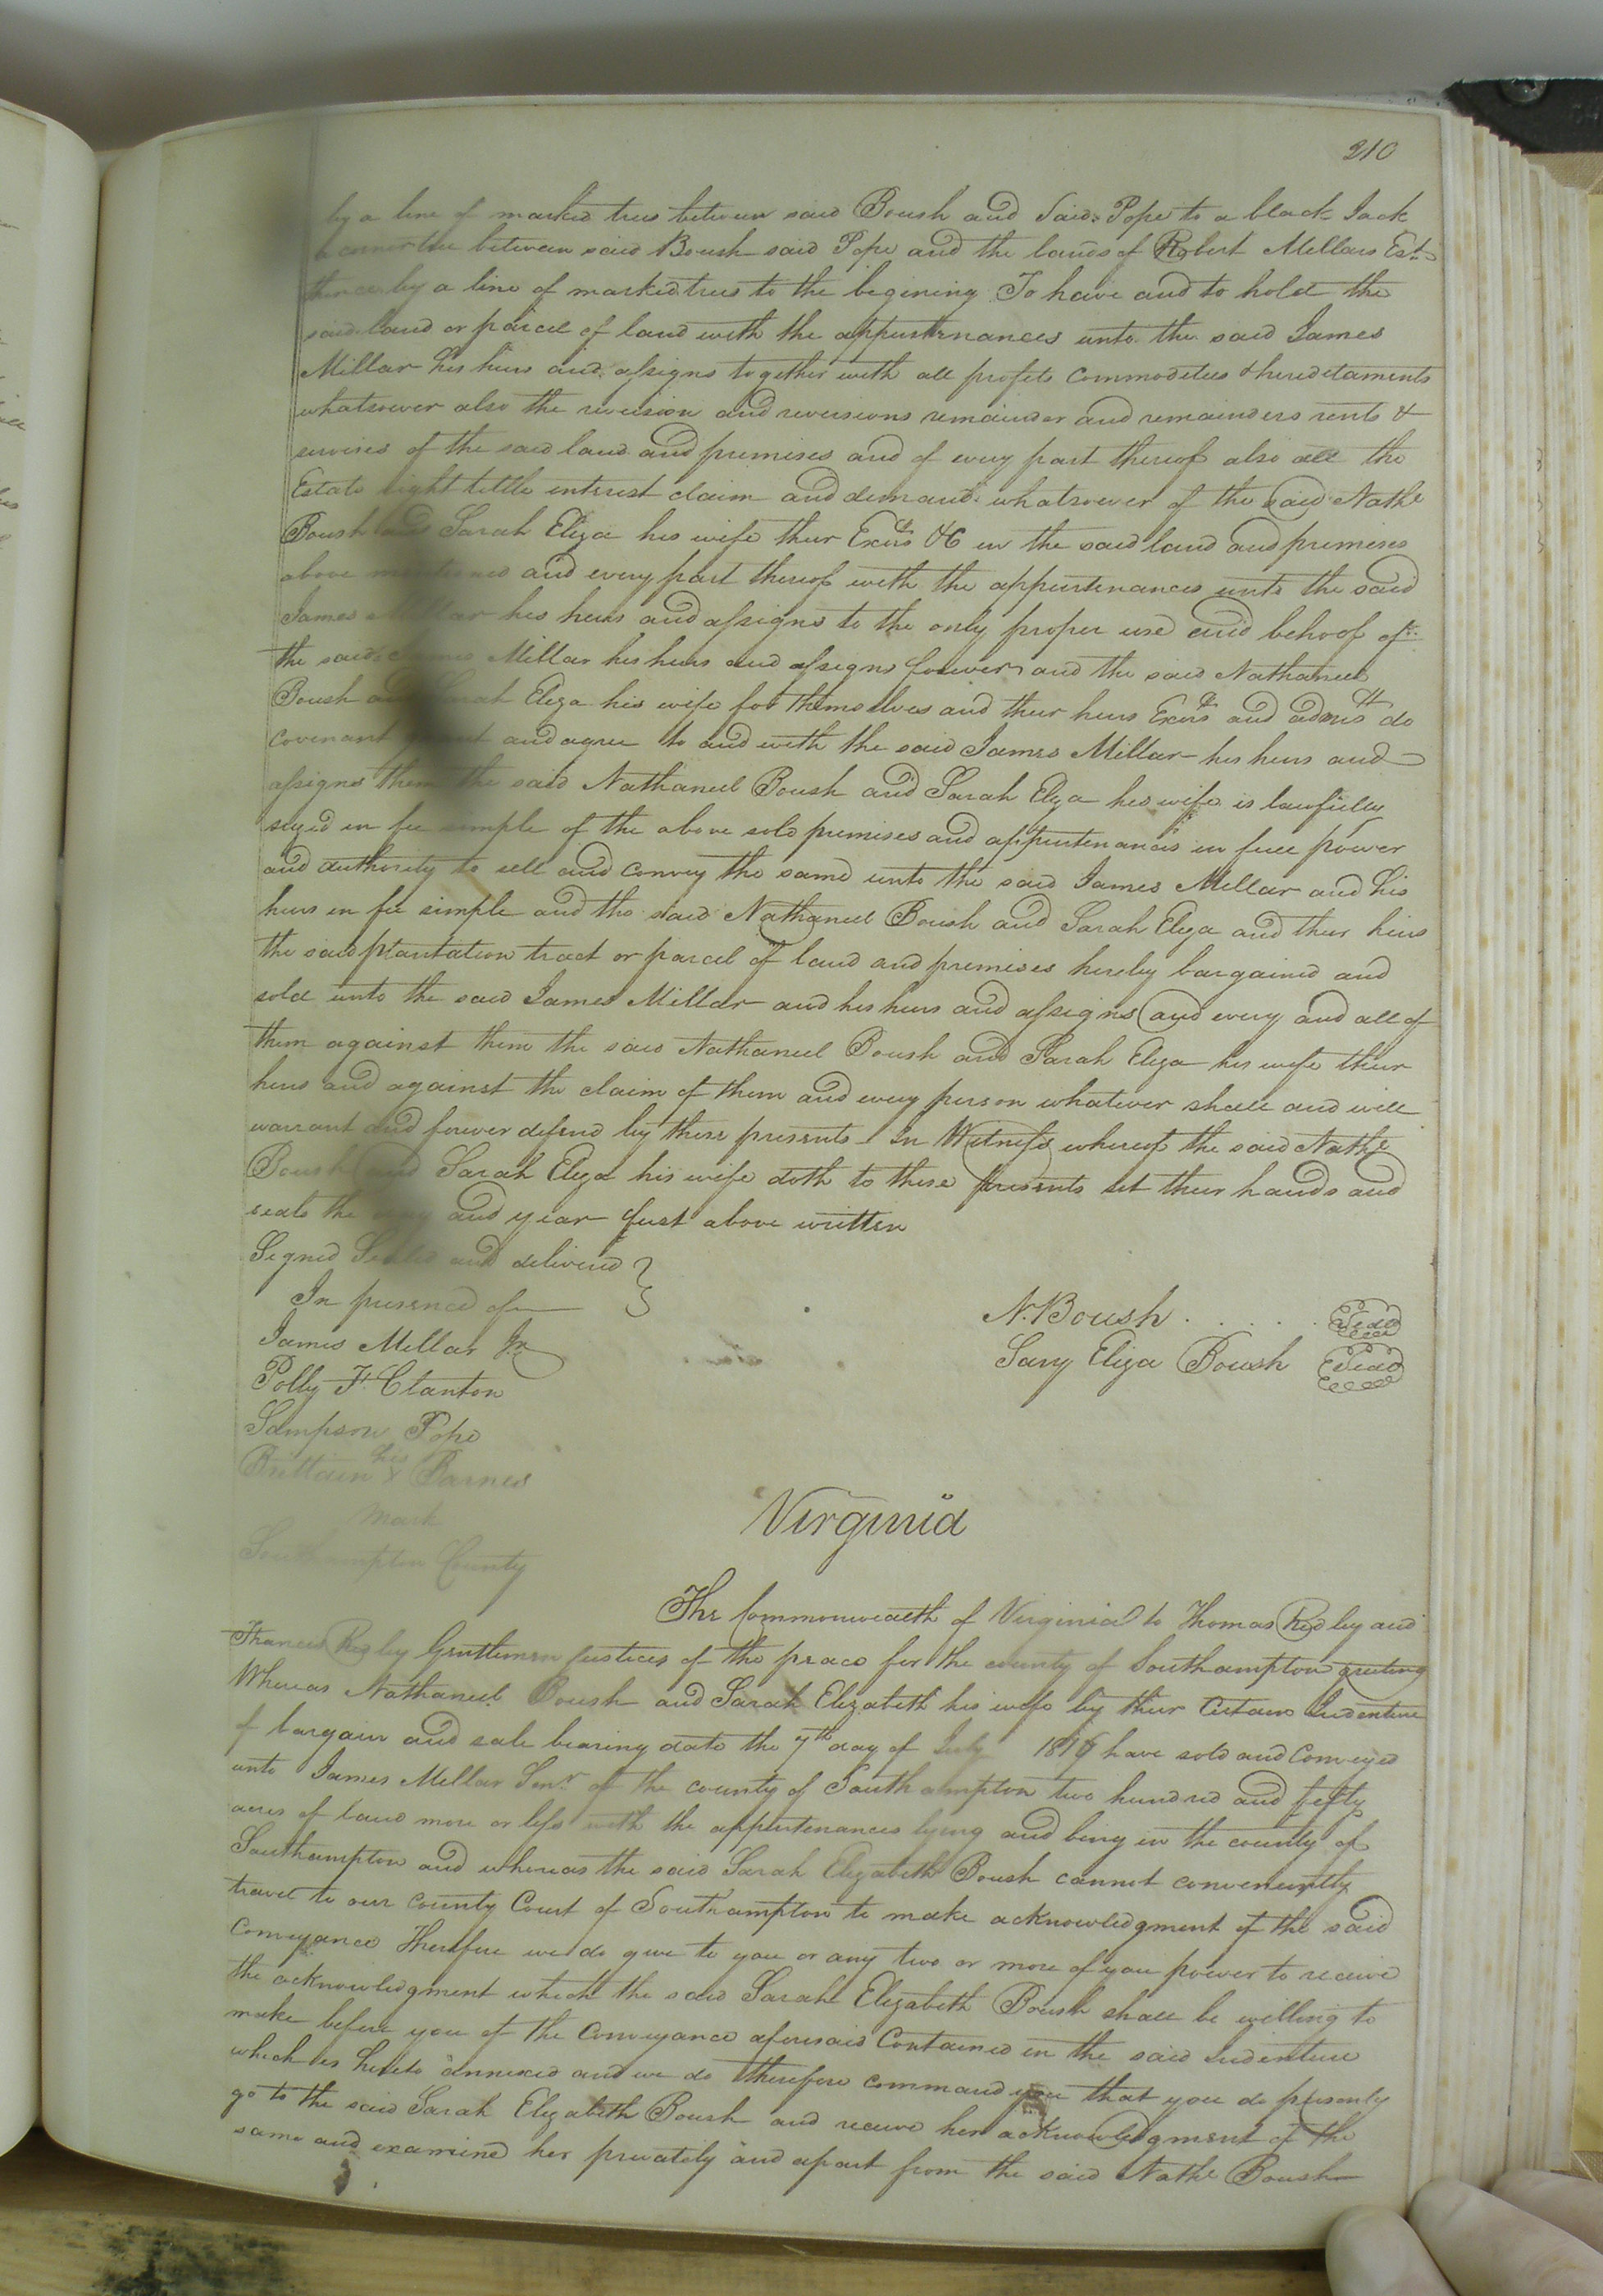 210
by a line of marked trees between said Boush and Said Pope to a black Jack
a corner tree between said Boush said Pope and the lands of Robert Millars Est
thence by a line of marked trees to the begining To have and to hold the
said land or parcel of land with the appurtenances unto the said James
Millar his heirs and assigns together with all profits commodities & hereditaments
whatsoever also the revesion and reversions remainder and remainders rents &
services of the said land and premises and of every part thereof also all the
Estate right tittle interest claim and demand whatsoever of the said Nathl
Boush and Sarah Eliza his wife their Exers &C in the said land and premises
above mentioned and every part thereof with the appurtenances unto the said
James Millar his heirs and assigns to the only proper use and behoof of
the said James Millar his heirs and assigns forever and the said Nathaniel
Boush and Sarah Eliza his wife for themselves and their heirs Exers and admrs do
covenant grant and agree to and with the said James Millar his heirs and
assigns them the said Nathaniel Boush and Sarah Eliza his wife is lawfully
seized in fee simple of the above sold premises and appurtenances in full power
and authority to sell and convey the same unto the said James Millar and his
heirs in fee simple and the said Nathaniel Boush and Sarah Eliza and their heirs
the said plantation tract or parcel of land and premises hereby bargained and
sold unto the said James Millar and his heirs and assigns and every and all of
them against them the said Nathaniel Boush and Sarah Eliza his wife their
heirs and against the claim of them and every person whatever shall and will
warrant and forever defend by these presents In Witness whereof the said Nathl
Boush and Sarah Eliza his wife doth to these presents set their hands and
seals the day and year first above written
Signed Sealed and delivered }
In presence of
N. Boush . . . . . Seal
James Millar Jr
Sary Eliza Boush Seal
Polly F. Clanton
Sampson Pope
Brittain his x Barnes
mark
Virginia
Southampton County
The Commonwealth of Virginia to Thomas Ridley and
Francis Ridley Gentlemen justices of the peace for the county of Southampton greeting
Whereas Nathaniel Boush and Sarah Elizabeth his wife by their Certain Indenture
of bargain and sale bearing date the 7th day of July 1816 have sold and Conveyed
unto James Millar Senr of the county of Southampton two hundred and fifty
acres of land more or less with the appurtenances lying and being in the county of
Southampton and whereas the said Sarah Elizabeth Boush cannot conveniently
travel to our county Court of Southampton to make acknowledgment of the said
Conveyance Therefore we do give to you or any two or more of you power to receive
the acknowledgment which the said Sarah Elizabeth Boush shall be willing to
make before you of the Conveyance aforesaid Contained in the said Indenture
which is hereto annexed and we do therefore command you that you do personly
go to the said Sarah Elizabeth Boush and receive her acknowledgment of the
same and examine her privately and apart from the said Nathl Boush